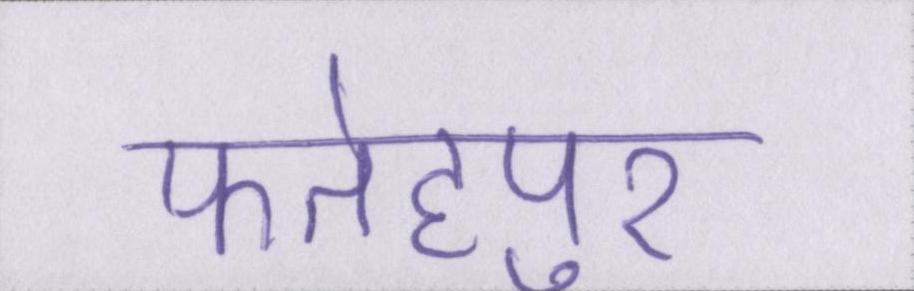 फतेहपुर